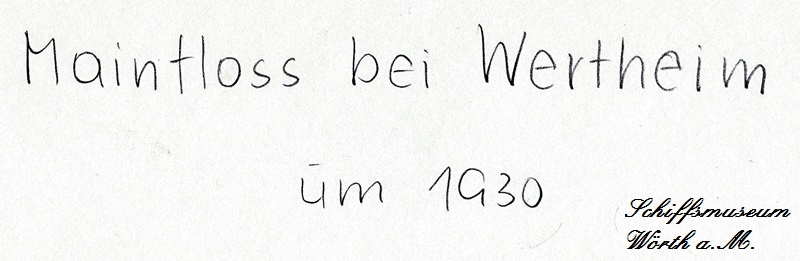 Mainfloss bei Wertheim
um 1930
Schiffsmuseum
Wörth a.M.